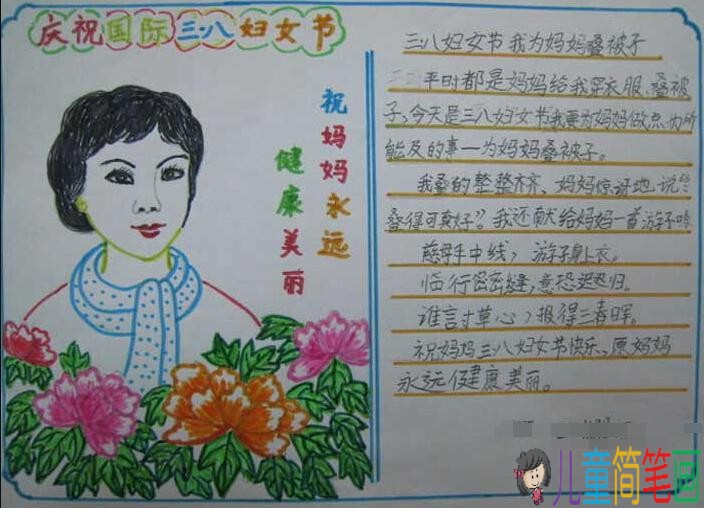 庆祝国际三八妇女节
祝妈妈永远
健康美丽
三八妇女节我为妈妈叠被子
平时都是妈妈给我穿衣服、叠被
子,今天是三八妇女节我要为妈妈做点力所
能及的事—为妈妈叠被子。
我叠的整整齐齐、妈妈惊讶地说:
叠得可真好?我还献给妈妈一首游子吟
慈母手中线,游子身上衣。
临行密密缝,意恐迟迟归。
谁言寸草心,报得三春晖。
祝妈妈三八妇女节快乐、原妈妈
永远健康美丽。
儿童简笔画